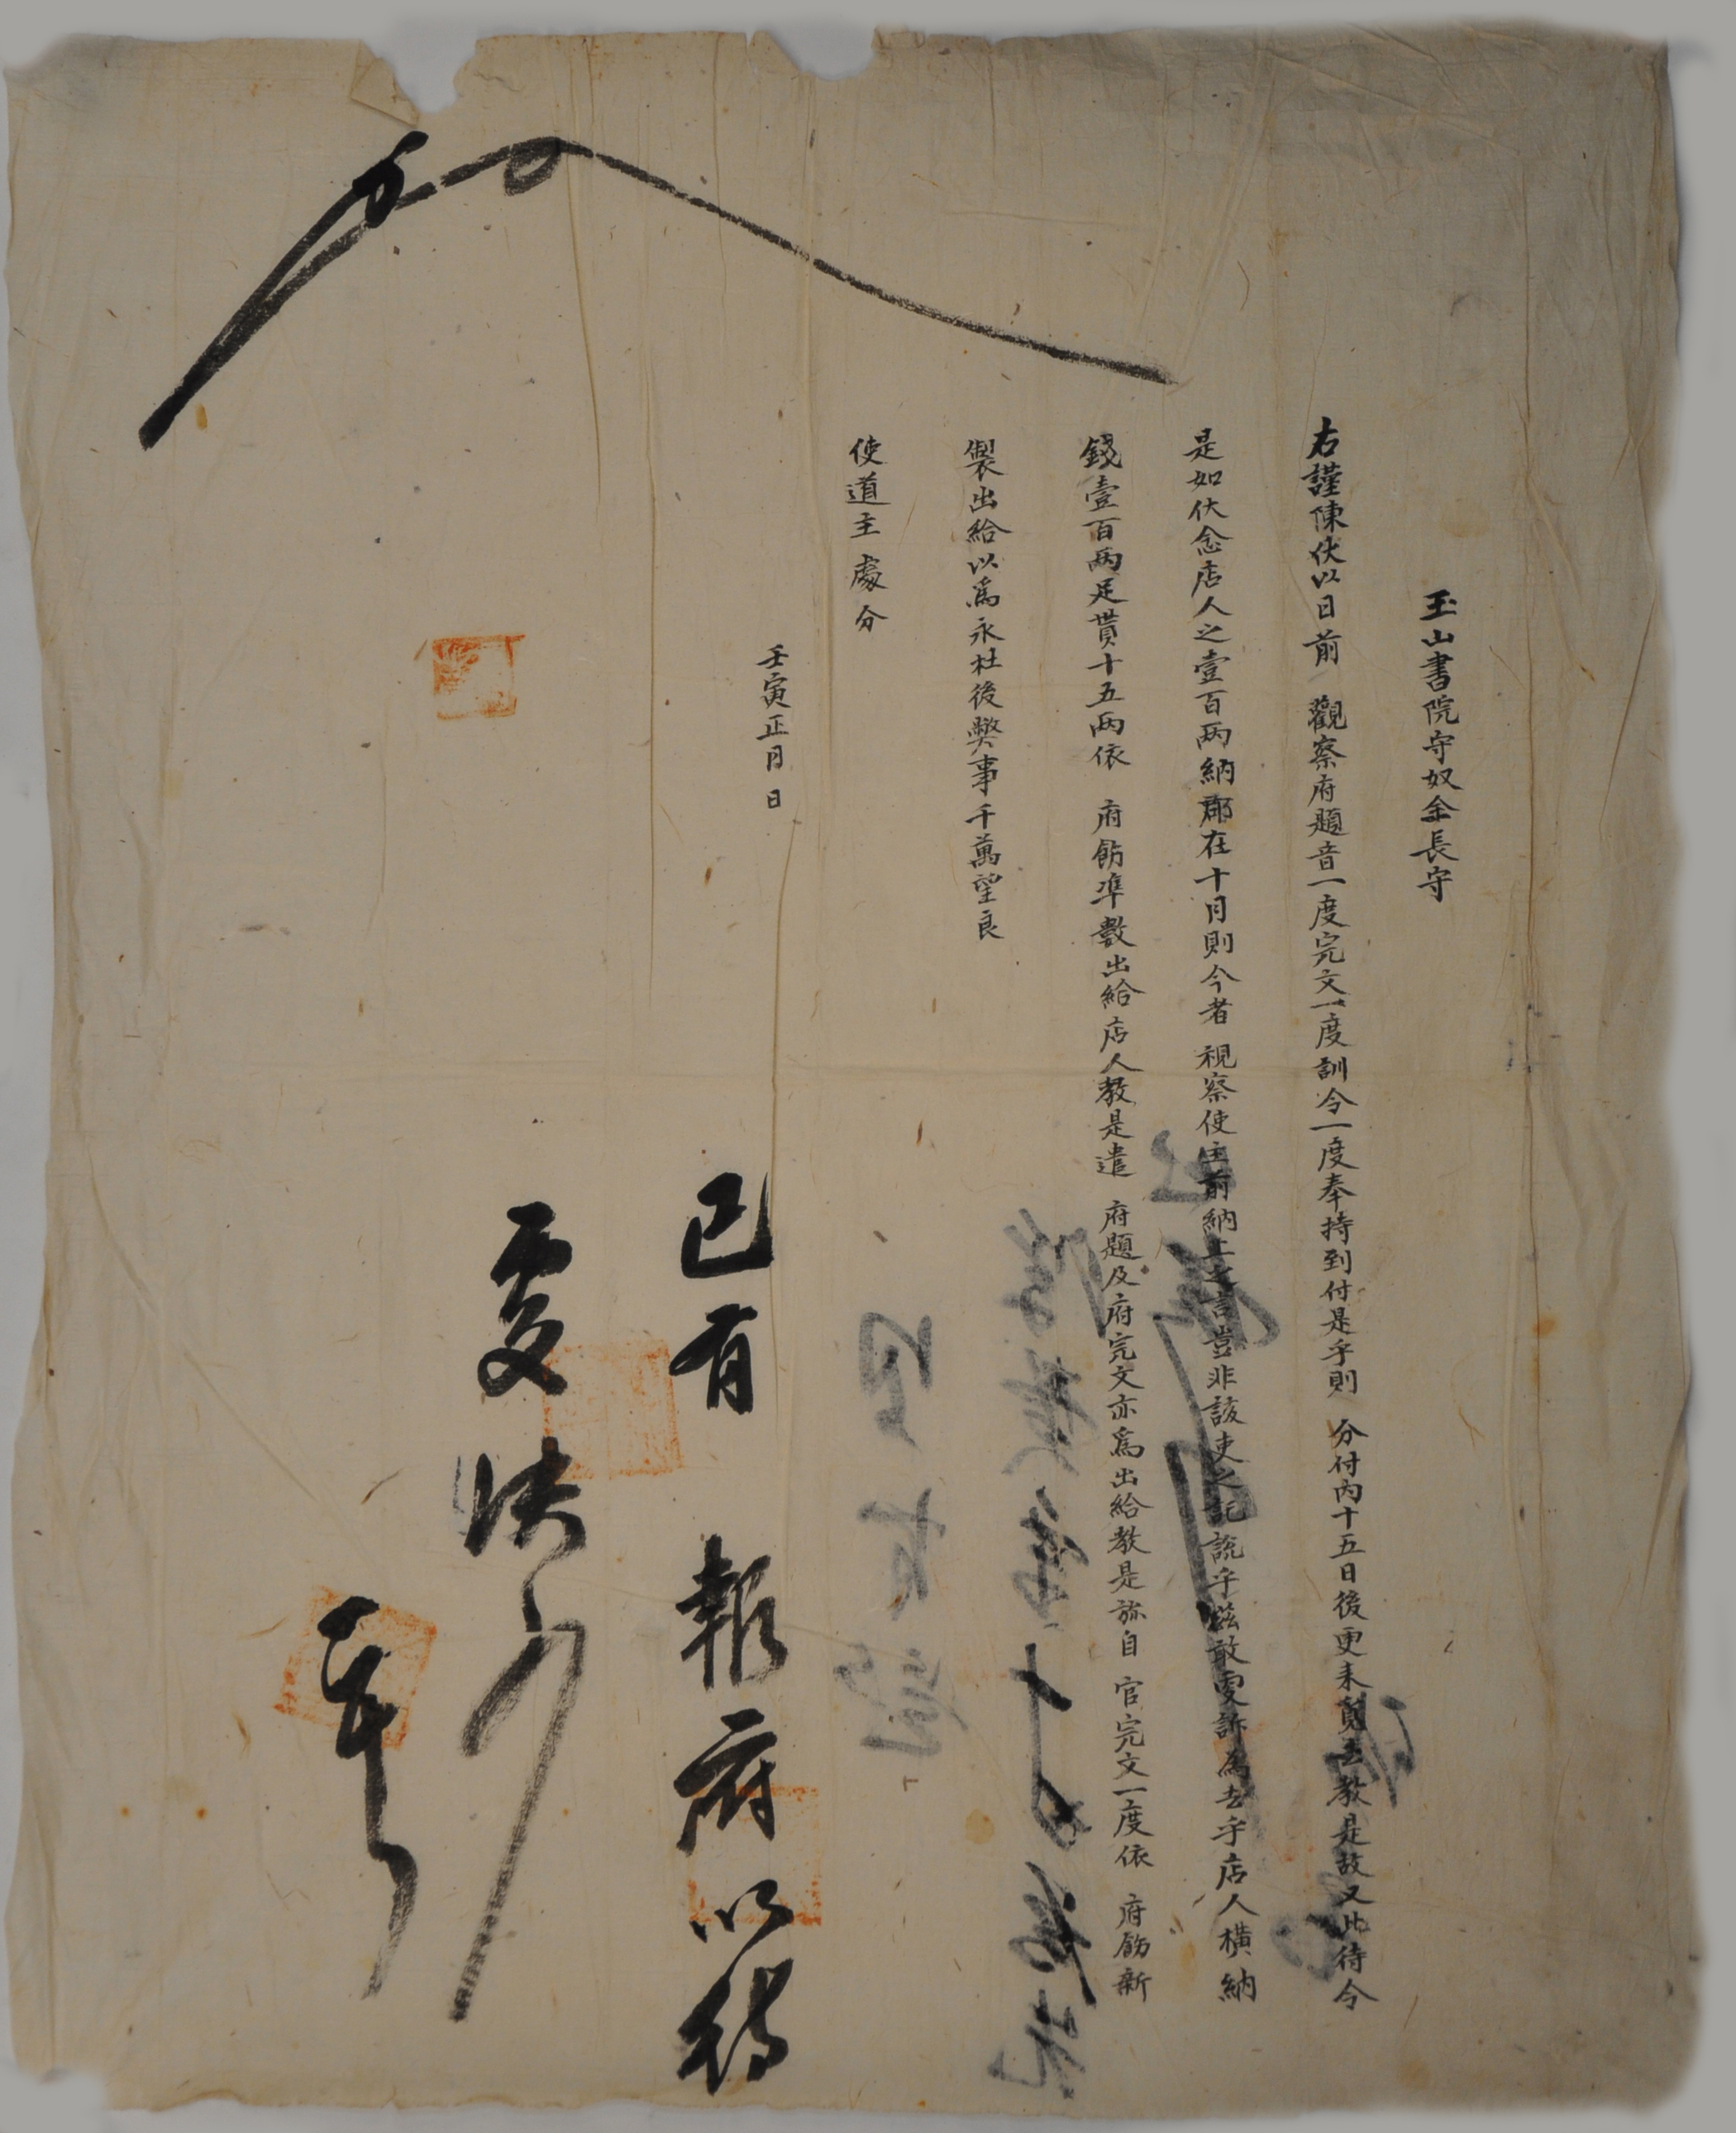 玉山書院守奴金長守
右謹陳伏以日前 觀察府題音一度完文一度訓令一度奉持到付是乎則 分付內十五日後更來覓去教是故又此待令
是如伏念店人之壹百兩納郡在十月則今者 視察使主前納上之言豈非該吏之記謊乎玆敢更訴爲去乎店人橫納
錢壹百兩足貰十五兩依 府飭準數出給店人教是遣 府題及府完文亦爲出給教是旀自 官完文一度依 府飭新
製出給以爲永杜後弊事千萬望良
使道主 處分
壬寅正月 日
已有 報府以待
更決